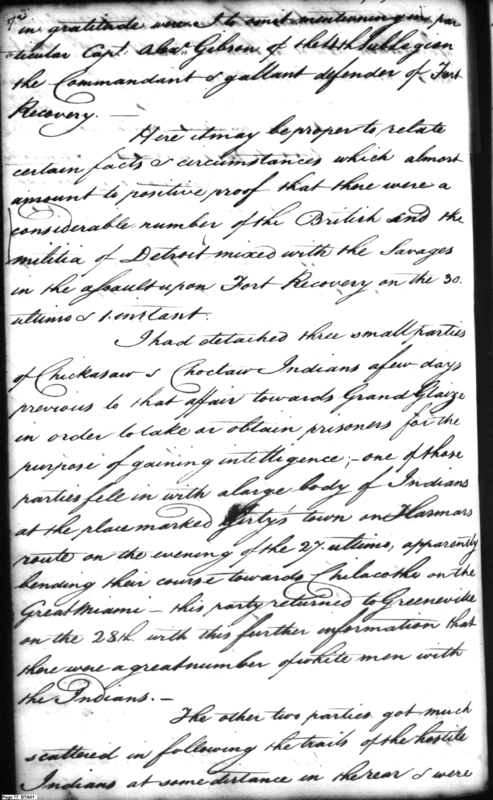 in gratitude were I to omit mentioning in par
ticular Capt. Alexr. Gibson of the 4th Sub Legion
the Commandant & gallant defender of Fort
Recovery. —
Here it may be proper to relate
certain facts & circumstances which almost
amount to positive proof that there were a
considerable number of the British and the
militia of Detroit mixed with the Savages
in the assault upon Fort Recovery on the 30.
ultimo & 1. instant.
I had detached three small parties
of Chickasaw & Choctaw Indians a few days
previous to that affair towards Grand Glaize
in order to take or obtain prisoners for the
purpose of gaining intelligence; - one of those
parties fell in with a large body of Indians
at the place marked Girty's town on Harmars
route on the evening of the 27. ultimo, apparently
bending their course towards Chelacothe on the
Great Miami - this party returned to Greeneville
on the 28th. with this further information that
there were a great number of white men with
the Indians. —
The other two parties got much
scattered in following the trails of the hostile
Indians at some distance in the rear & were
Page 77 01A01